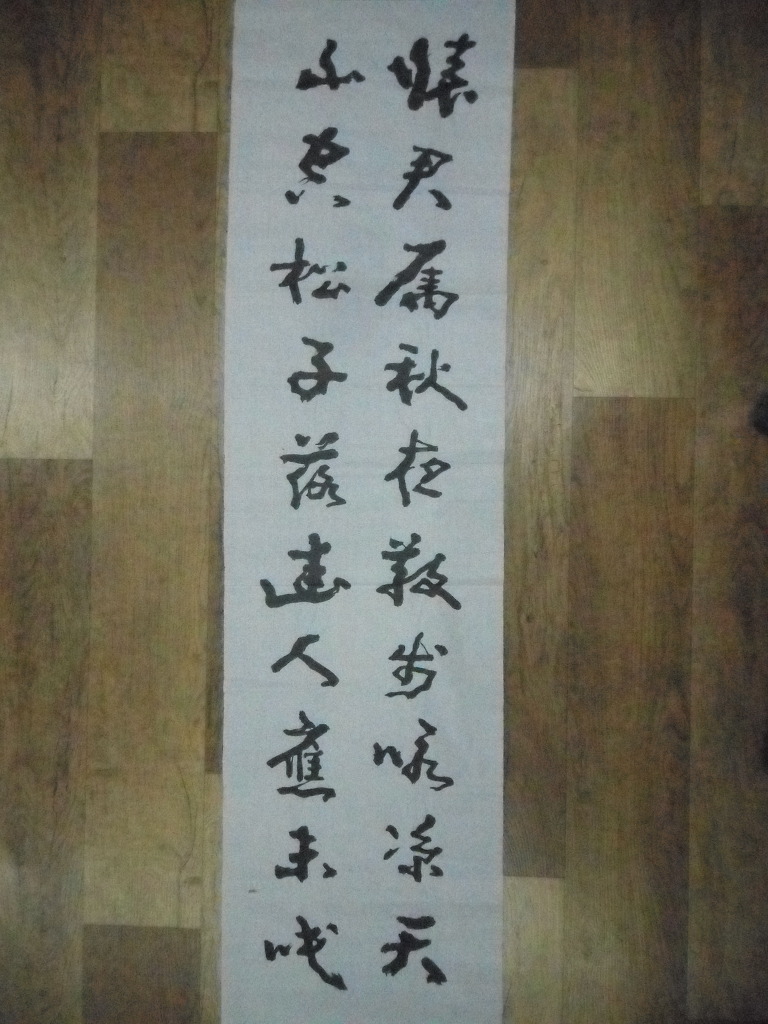 懷君属秋夜散步咏凉天
山空松子落幽人應未眠